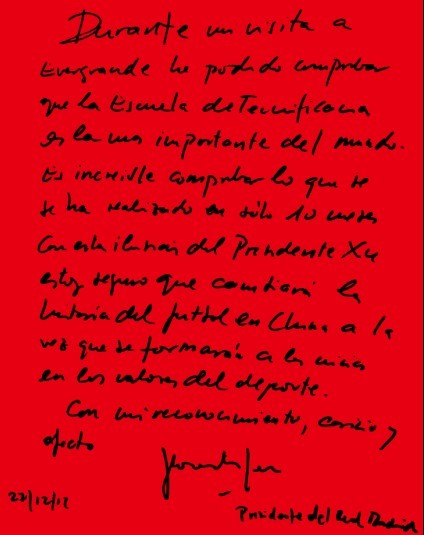 Durante mi visita a
Evergrande he podido comprobar
que la Escuela de Tecnificación
es la mas importante del mundo.
Es increible comprobar lo que se
se ha realizado en sólo 10 meses
Con esta ilusión del Presidente Xu
estoy seguro que cambiará la
historia del futbol en China a la
vez que se formarán a los niños
en los valores del deporte.
Con mi reconocimiento, cariño y
afecto
22/12/12
Presidente del Real Madrid